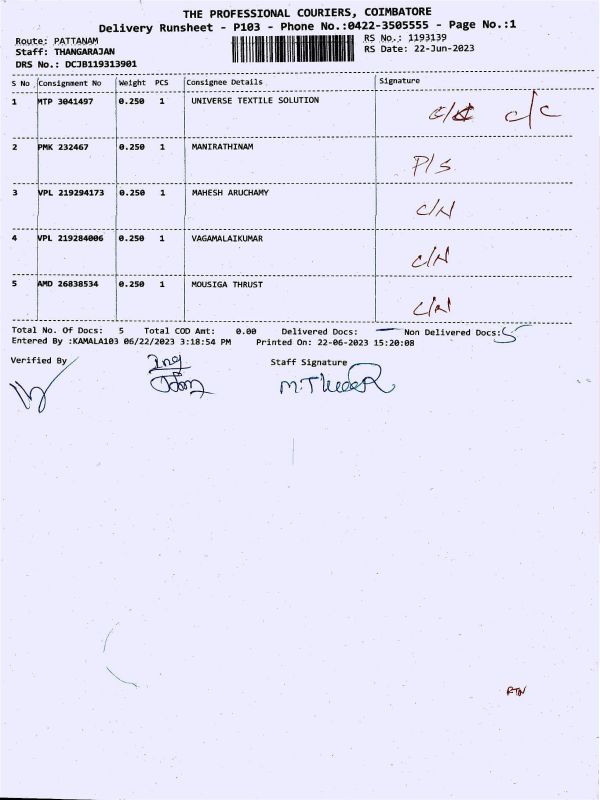 THE PROFESSIONAL COURIERS, COIMBATORE
Delivery Runsheet - P103 - Phone No.:0422-3505555 - Page No.:1
Route: PATTANAM
RS No.: 1193139
Staff: THANGARAJAN
RS Date: 22-Jun-2023
DRS No.: DCJB119313901
S No Consignment No Weight PCS Consignee Details Signature
1 MTP 3041497 0.250 1 UNIVERSE TEXTILE SOLUTION C/C
2 PMK 232467 0.250 1 MANIRATHINAM P/S
3 VPL 219294173 0.250 1 MAHESH ARUCHAMY C/N
4 VPL 219284006 0.250 1 VAGAMALAIKUMAR C/N
5 AMD 26838534 0.250 1 MOUSIGA THRUST C/N
Total No. Of Docs: 5 Total COD Amt: 0.00 Delivered Docs: — Non Delivered Docs: 5
Entered By :KAMALA103 06/22/2023 3:18:54 PM Printed On: 22-06-2023 15:20:08
Verified By Staff Signature
RTN